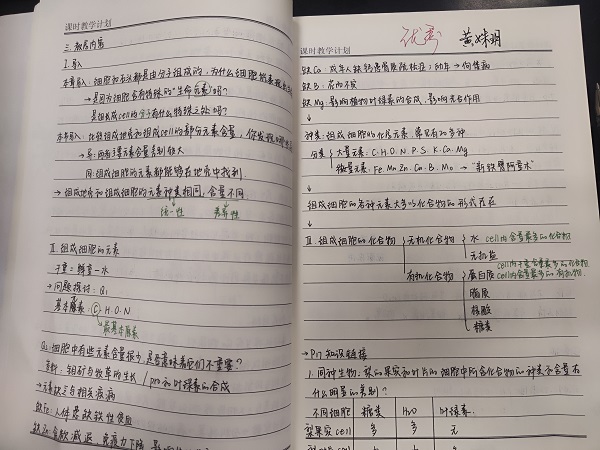 课时教学计划
三.教学内容
I.导入
本章导入:细胞和石头都是由分子组成的,为什么细胞
→是因为细胞含有特殊的"生命元素"吗?
是组成cell的分子有什么特殊之处吗?
本节导入:比较组成地壳和组成cell的部分元素含量,你发现
→异:两者主要元素含量差别较大
同:组成细胞的元素都能够在地壳中找到.
→组成地壳和组成细胞的元素种类相同,含量不同
统一性 差异性
II.组成细胞的元素
干重:鲜重-水
→问题探讨:Q1
基本元素:C.H.O.N
最基本元素
Q2:细胞中有些元素含量很少,是否意味着它们不重要?
资料:钼矿与牧草的生长/pro和叶绿素的合成
→元素缺乏与相关疾病
缺Fe:人体患缺铁性贫血
缺Zn:食欲减退,免疫力下降
课时教学计划
优秀 黄姝玥
缺Ca:成年人缺钙患骨质疏松症;幼年→佝偻病
缺B:花而不实
缺Mg:影响植物叶绿素的合成,影响光合作用
↓
种类:组成细胞的化学元素,常见有20多种
分类 大量元素:C.H.O.N.P.S.K.Ca.Mg
微量元素:Fe.Mn.Zn.Cu.B.Mo→"新铁臂阿童木"
↓
组成细胞的各种元素大多以化合物的形式存在
↓
III.组成细胞的化合物 无机化合物 水 cell内含量最多的化合物
无机盐
有机化合物 蛋白质 cell内干重含量最多的化合物 cell内含量最多的有机物.
脂质
核酸
糖类
→P17知识链接
1.同种生物:梨的果实和叶片的细胞中所含化合物的种类和含量有
什么明显的差别?
不同细胞 糖类 H₂O 叶绿素
梨果实cell 多 多 无